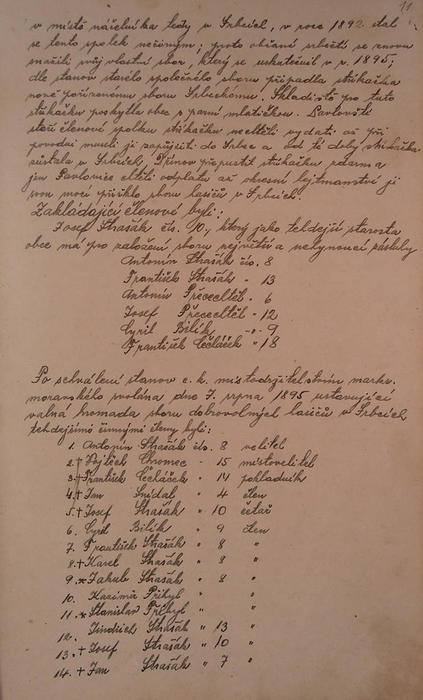 11
v místě náčelníka hasy v Srbcích, v roce 1892 stal
se tento spolek nečinným; proto občané srbečtí se znovu
snažili svůj vlastní sbor, který se uskutečnil v r. 1895,
dle stanov starého společného sboru připadla stříkačka
nově pořízenému sboru Srbeckému. Skladiště pro tuto
stříkačku poskytla obec s parní mlátičkou. Pavlovští
staří členové spolku stříkačku nechtěli vydati až při
povodni museli ji zapůjčiti do Srbce a od té doby stříkačka
zůstala v Srbcích, Dřínov přepustil stříkačku zdarma
jen Pavlovice chtěli odplatu až okresní hejtmanství ji
svou mocí přiřklo sboru hasičů v Srbcích.
Zakládající členové byli:
Josef Strašák čís. 10, který jako tehdejší starosta
obce má pro založení sboru největší a nehynoucí zásluhy
Antonín Strašák čís. 8
František Strašák - 13
Antonín Přecechtěl - 6
Josef Přecechtěl - 12
Cyril Bilík - 9
František Čechláček " 18
Po schválení stanov c. k. místodržitelstvím markr.
moravského svolána dne 7. srpna 1895 ustavující
valná hromada sboru dobrovolných hasičů v Srbcích,
tehdejšími činnými členy byli:
1. Antonín Strašák čís. 8 velitel
2. † Vojtěch Chromec - 15 místovelitel
3. † František Čechláček " 14 pokladník
4. † Jan Snídal " 4 člen
5. † Josef Strašák " 10 četař
6. Cyril Bilík " 9 člen
7. František Strašák " 8 "
8. † Karel Strašák " 8 "
9. * Jakub Strašák " 8 "
10. Kazimír Přibyl " "
11. * Stanislav Přibyl " "
12. Jindřich Strašák " 13 "
13. † Josef Strašák " 10 "
14. † Jan Strašák " 7 "